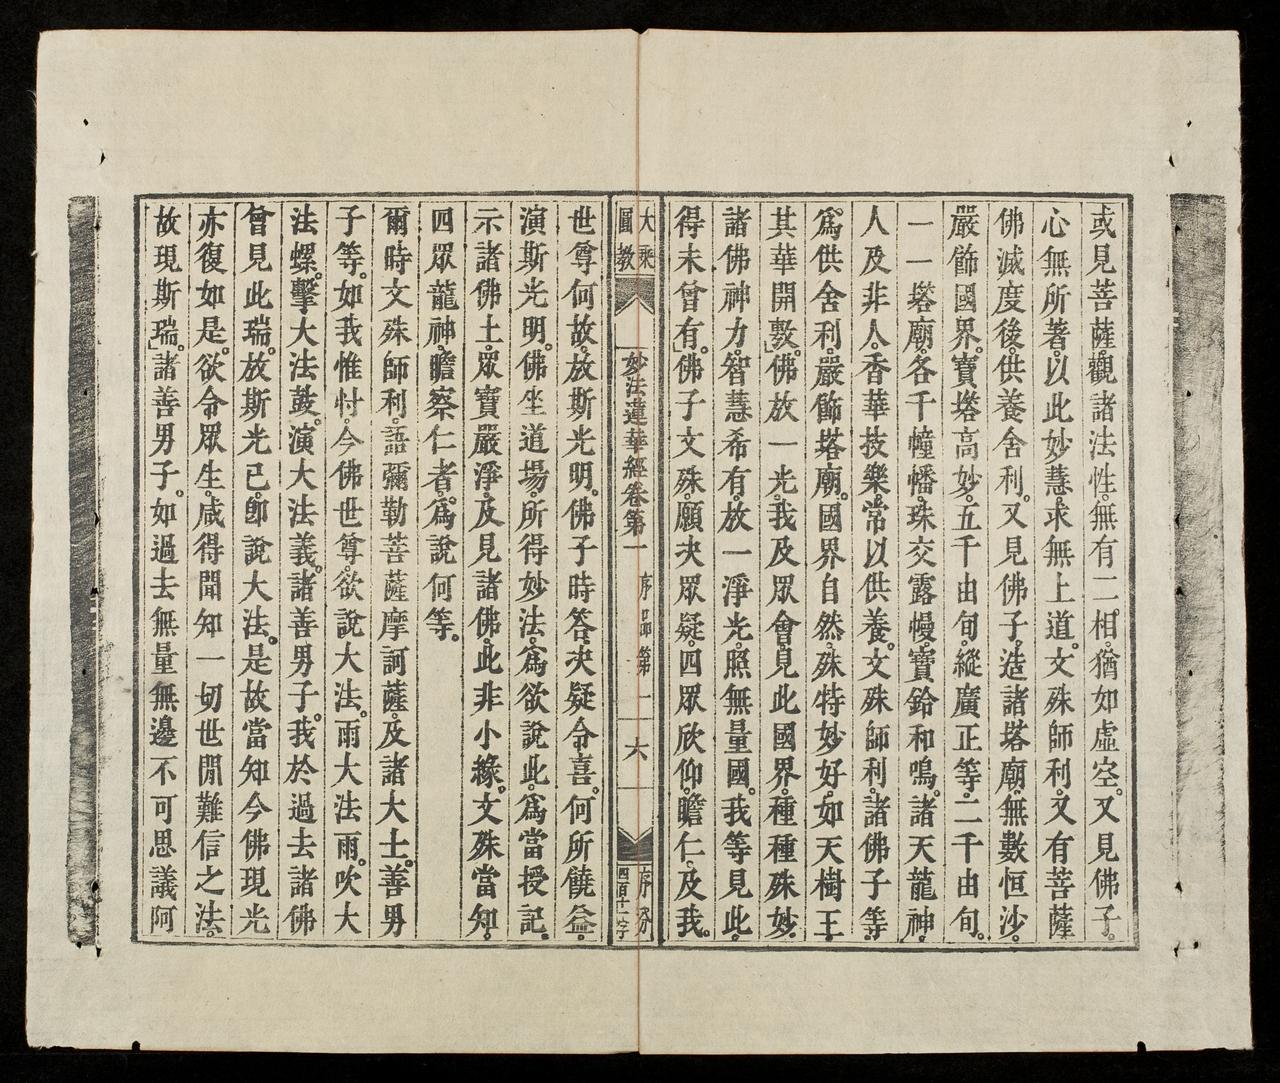 或見菩薩。觀諸法性。無有二相。猶如虛空。又見佛子。
心無所著。以此妙慧。求無上道。文殊師利。又有菩薩
佛滅度後。供養舍利。又見佛子。造諸塔廟。無數恒沙。
嚴飾國界。寶塔高妙。五千由旬。縱廣正等。二千由旬。
一一塔廟。各千幢幡。珠交露幔。寶鈴和鳴。諸天龍神。
人及非人。香華技樂。常以供養。文殊師利。諸佛子等。
爲供舍利。嚴飾塔廟。國界自然。殊特妙好。如天樹王。
其華開敷。佛放一光。我及眾會。見此國界。種種殊妙。
諸佛神力。智慧希有。放一淨光。照無量國。我等見此。
得未曾有。佛子文殊。願決眾疑。四眾欣仰。瞻仁及我。
大乘
圓教
妙法蓮華經卷第一
序品第一
六
序分
四百十一字
世尊何故。放斯光明。佛子時答。決疑令喜。何所饒益。
演斯光明。佛坐道場。所得妙法。爲欲說此。爲當授記。
示諸佛土。眾寶嚴淨。及見諸佛。此非小緣。文殊當知。
四眾龍神。瞻察仁者。爲說何等。
爾時文殊師利。語彌勒菩薩摩訶薩。及諸大士。善男
子等。如我惟忖。今佛世尊。欲說大法。雨大法雨。吹大
法螺。擊大法鼓。演大法義。諸善男子。我於過去諸佛
曾見此瑞。放斯光已。卽說大法。是故當知。今佛現光
亦復如是。欲令眾生。咸得聞知。一切世閒難信之法。
故現斯瑞。諸善男子。如過去無量無邊不可思議阿